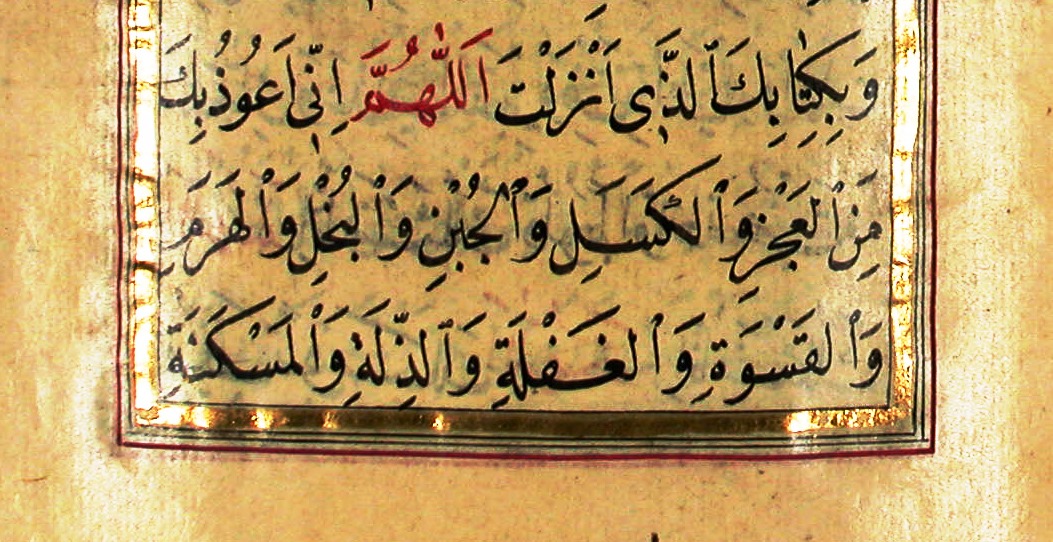 وَبِكِتَابِكَ ٱلَّذِى اَنْزَلْتَ اَللّٰهُمَّ اِنِّى اَعُوذُ بِكَ
مِنَ ٱلْعَجْزِ وَٱلْكَسَلِ وَٱلْجُبْنِ وَٱلْبُخْلِ وَٱلْهَرَمِ
وَٱلْقَسْوَةِ وَٱلْغَفْلَةِ وَٱلذِّلَّةِ وَٱلْمَسْكَنَةِ